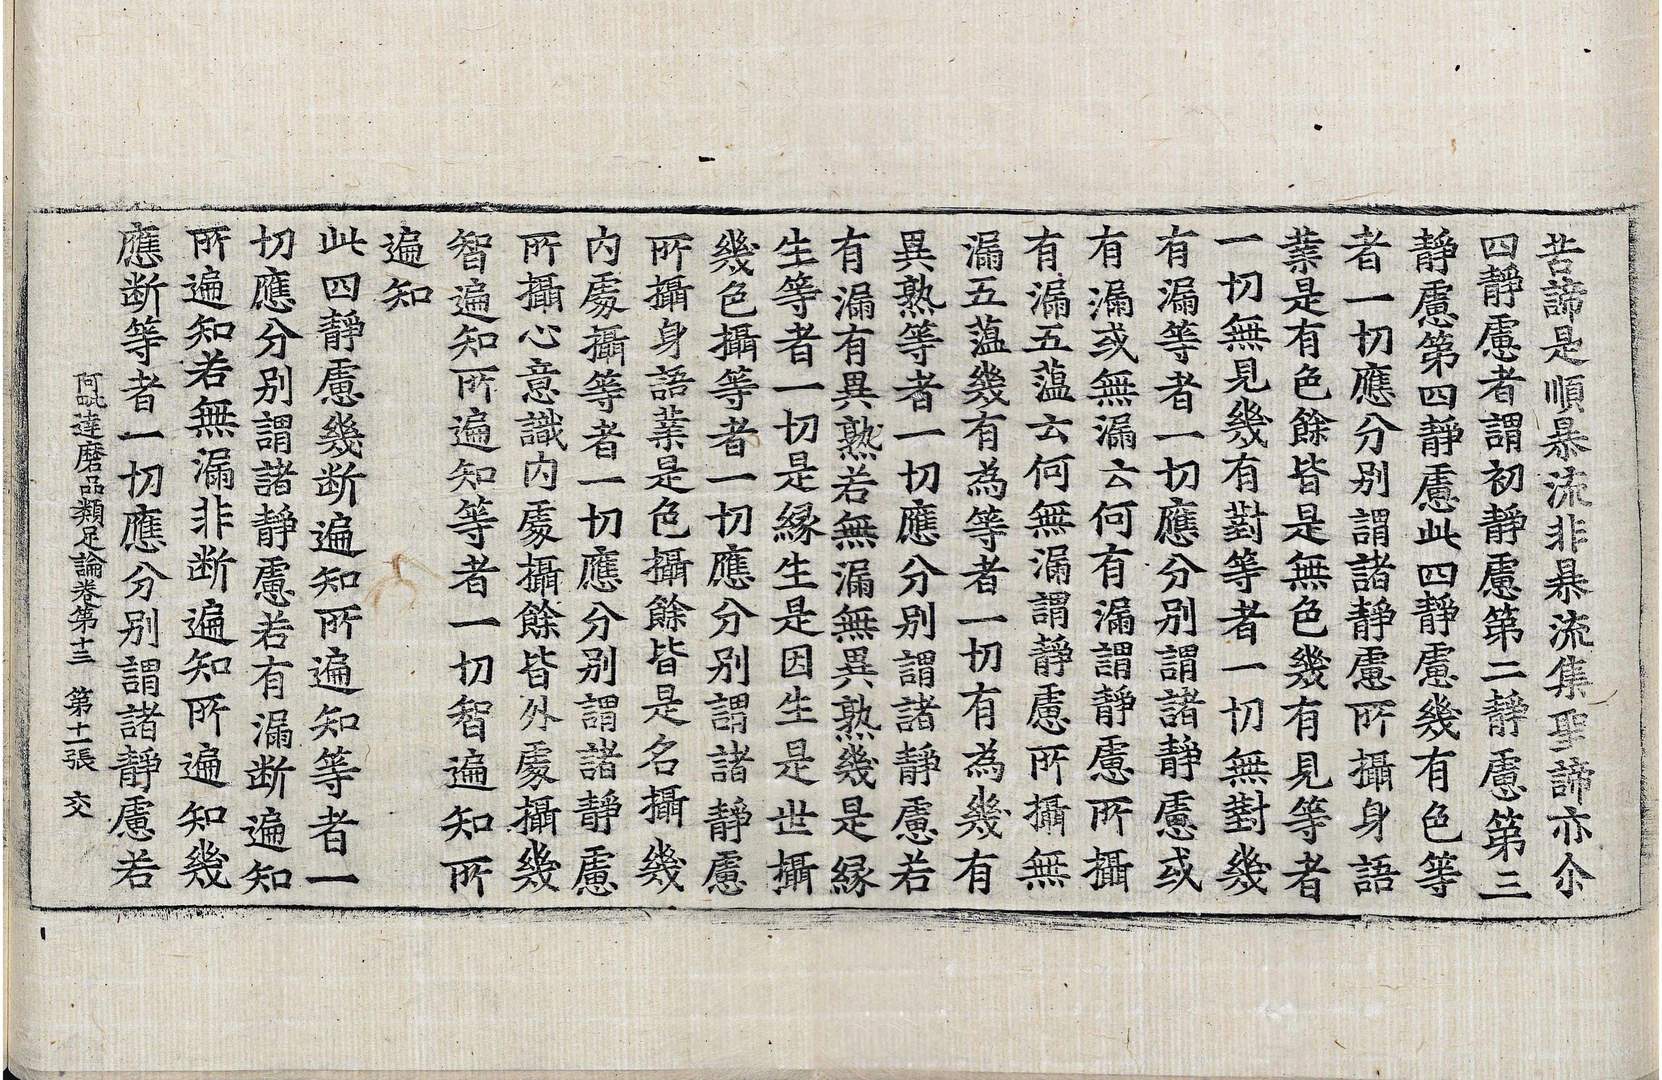 苦諦是順暴流非暴流集聖諦亦尒
四靜慮者謂初靜慮第二靜慮第三
靜慮第四靜慮此四靜慮幾有色等
者一切應分別謂諸靜慮所攝身語
業是有色餘皆是無色幾有見等者
一切無見幾有對等者一切無對幾
有漏等者一切應分別謂諸靜慮或
有漏或無漏云何有漏謂靜慮所攝
有漏五蕰云何無漏謂靜慮所攝無
漏五蕰幾有為等者一切有為幾有
異熟等者一切應分別謂諸靜慮若
有漏有異熟若無漏無異熟幾是緣
生等者一切是緣生是因生是世攝
幾色攝等者一切應分別謂諸靜慮
所攝身語業是色攝餘皆是名攝幾
內處攝等者一切應分別謂諸靜慮
所攝心意識內處攝餘皆外處攝幾
智遍知所遍知等者一切智遍知所
遍知
此四靜慮幾斷遍知所遍知等者一
切應分別謂諸靜慮若有漏斷遍知
所遍知若無漏非斷遍知所遍知幾
應斷等者一切應分別謂諸靜慮若
阿毗達磨品類足論卷第十三 第十一張 交